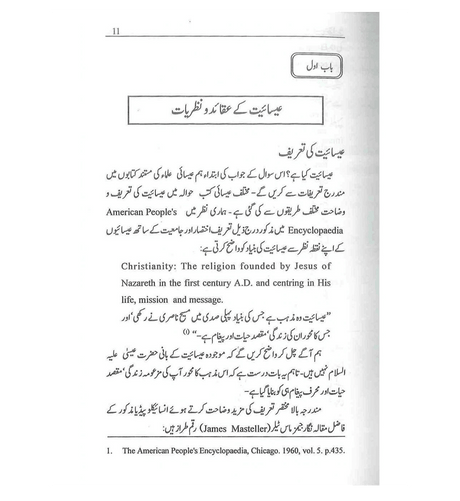 11
باب اول
عیسائیت کے عقائد و نظریات
عیسائیت کی تعریف
عیسائیت کیا ہے؟ اس سوال کے جواب کی ابتداء ہم عیسائی علماء کی مستند کتابوں میں
مندرج تعریفات سے کریں گے۔ مختلف عیسائی کتب حوالہ میں عیسائیت کی تعریف و
وضاحت مختلف طریقوں سے کی گئی ہے۔ ہماری نظر میں American People's
Encyclopaedia میں مذکور درج ذیل تعریف اختصار اور جامعیت کے ساتھ عیسائیوں
کے اپنے نقطہ نظر سے عیسائیت کی بنیاد کو واضح کرتی ہے:
Christianity: The religion founded by Jesus of
Nazareth in the first century A.D. and centring in His
life, mission and message.
"عیسائیت وہ مذہب ہے جس کی بنیاد پہلی صدی میں مسیح ناصری نے رکھی' اور
جس کا محور ان کی زندگی' مقصد حیات اور پیغام ہے۔" (۱)
ہم آگے چل کر واضح کریں گے کہ موجودہ عیسائیت کے بانی حضرت عیسیٰ علیہ
السلام نہیں ہیں۔ تاہم یہ بات درست ہے کہ اس مذہب کا محور آپ کی مزعومہ زندگی' مقصد
حیات اور محرف پیغام ہی کو بنایا گیا ہے۔
مندرجہ بالا مختصر تعریف کی مزید وضاحت کرتے ہوئے انسائیکلو پیڈیا مذکور کے
فاضل مقالہ نگار جیمز ماس ٹیلر (James Masteller) رقم طراز ہیں:
1. The American People's Encyclopaedia, Chicago. 1960, vol. 5. p.435.